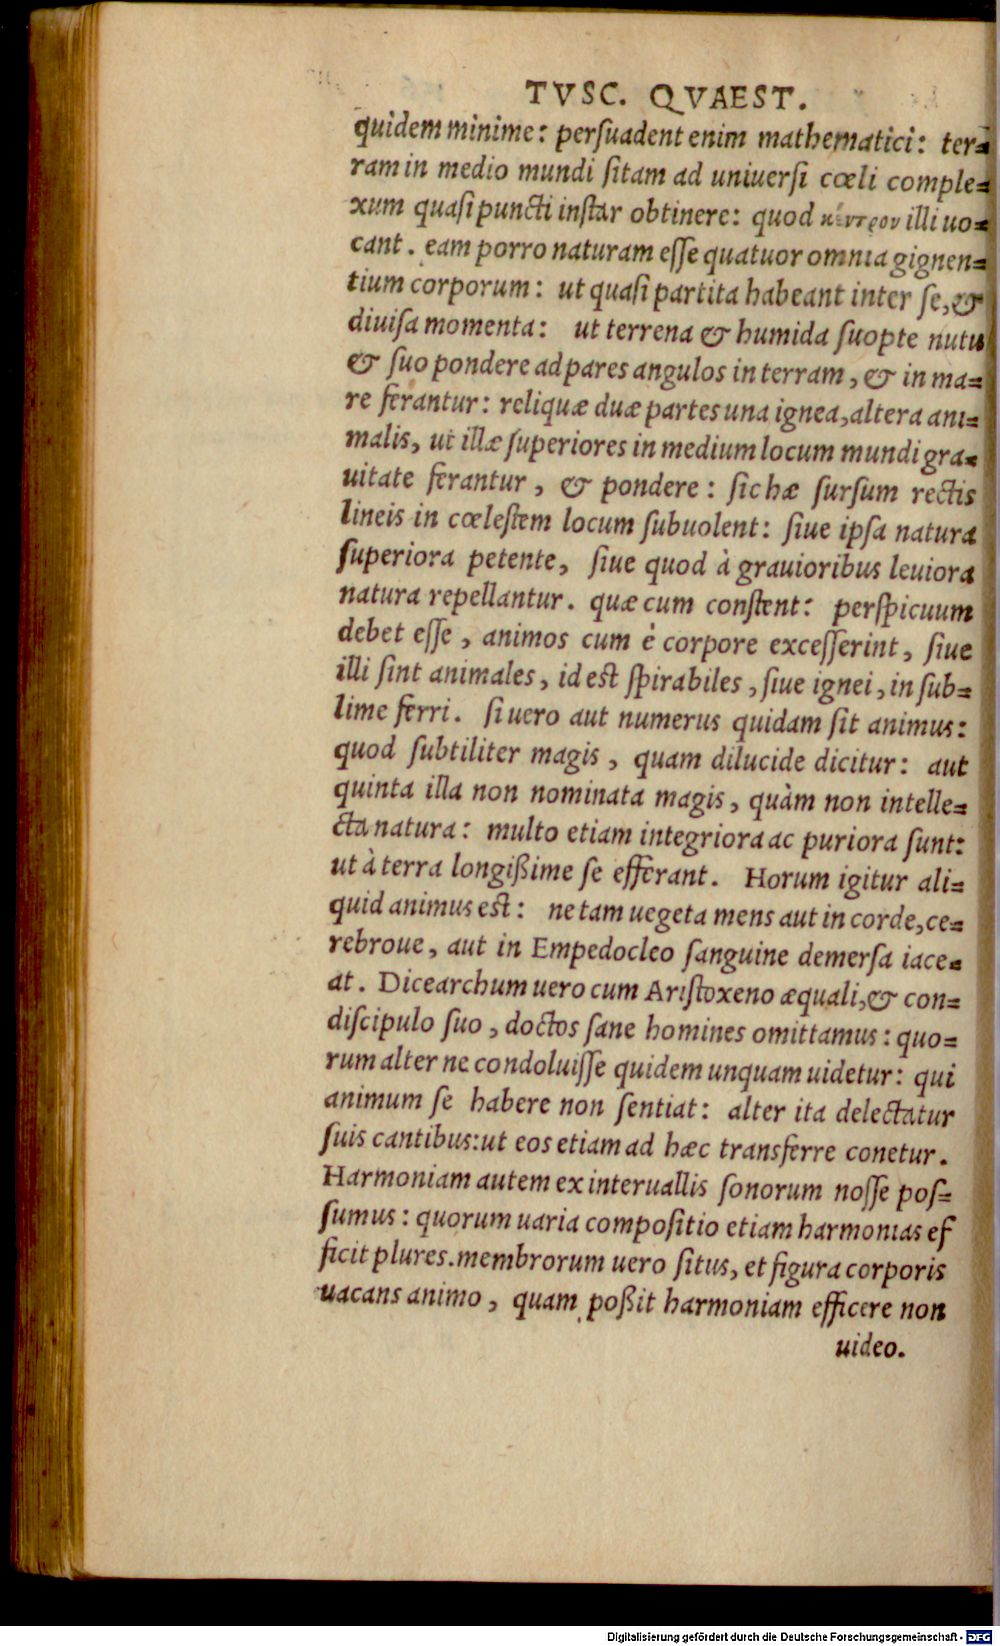 TVSC. QVAEST.
quidem minime: perſuadent enim mathematici: ter=
ram in medio mundi ſitam ad uniuerſi cœli comple=
xum quaſi puncti inſtar obtinere: quod κέντρον illi uo=
cant. eam porro naturam eſſe quatuor omnia gignen=
tium corporum: ut quaſi partita habeant inter ſe, &
diuiſa momenta: ut terrena & humida ſuopte nutu
& ſuo pondere ad pares angulos in terram, & in ma=
re ferantur: reliquæ duæ partes una ignea, altera ani=
malis, ut illæ ſuperiores in medium locum mundi gra=
uitate ferantur, & pondere: ſic hæ ſurſum rectis
lineis in cœleſtem locum ſubuolent: ſiue ipſa natura
ſuperiora petente, ſiue quod à grauioribus leuiora
natura repellantur. quæ cum conſtent: perſpicuum
debet eſſe, animos cum è corpore exceſſerint, ſiue
illi ſint animales, id eſt ſpirabiles, ſiue ignei, in ſub=
lime ferri. ſi uero aut numerus quidam ſit animus:
quod ſubtiliter magis, quam dilucide dicitur: aut
quinta illa non nominata magis, quàm non intelle=
cta natura: multo etiam integriora ac puriora ſunt:
ut à terra longißime ſe efferant. Horum igitur ali=
quid animus eſt: ne tam uegeta mens aut in corde, ce=
rebroue, aut in Empedocleo ſanguine demerſa iace=
at. Dicearchum uero cum Ariſtoxeno æquali, & con=
diſcipulo ſuo, doctos ſane homines omittamus: quo=
rum alter ne condoluiſſe quidem unquam uidetur: qui
animum ſe habere non ſentiat: alter ita delectatur
ſuis cantibus: ut eos etiam ad hæc transferre conetur.
Harmoniam autem ex interuallis ſonorum noſſe poſ=
ſumus: quorum uaria compoſitio etiam harmonias ef
ficit plures. membrorum uero ſitus, et figura corporis
uacans animo, quam poßit harmoniam efficere non
uideo.
Digitalisierung gefördert durch die Deutsche Forschungsgemeinschaft - DFG